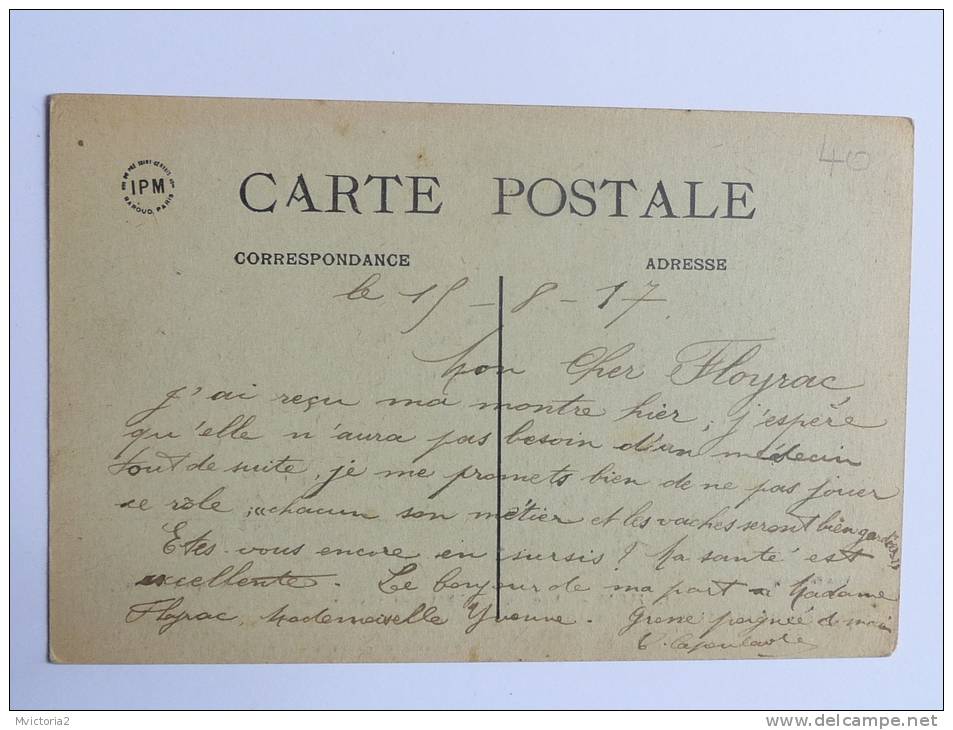 40
IPM
BAROUD, PARIS
CARTE POSTALE
CORRESPONDANCE
ADRESSE
le 15 - 8 - 17
Mon Cher Floyrac
J'ai reçu ma montre hier, j'espère
qu'elle n'aura pas besoin d'un médecin
tout de suite, je me promets bien de ne pas jouer
ce rôle, "chacun son métier et les vaches seront bien gardées"
Etes-vous encore en sursis? Ma santé est
excellente. Le bonjour de ma part à Madame
Floyrac, Mademoiselle Yvonne. Grosse poignée de main
Mvictoria2
www.delcampe.net